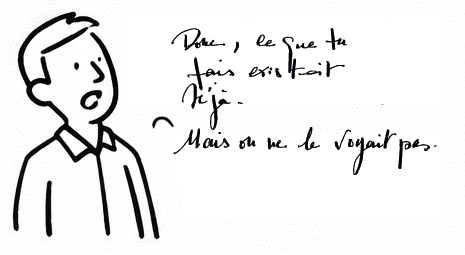 Donc, ce que tu
fais existait
déjà.
Mais on ne le voyait pas.